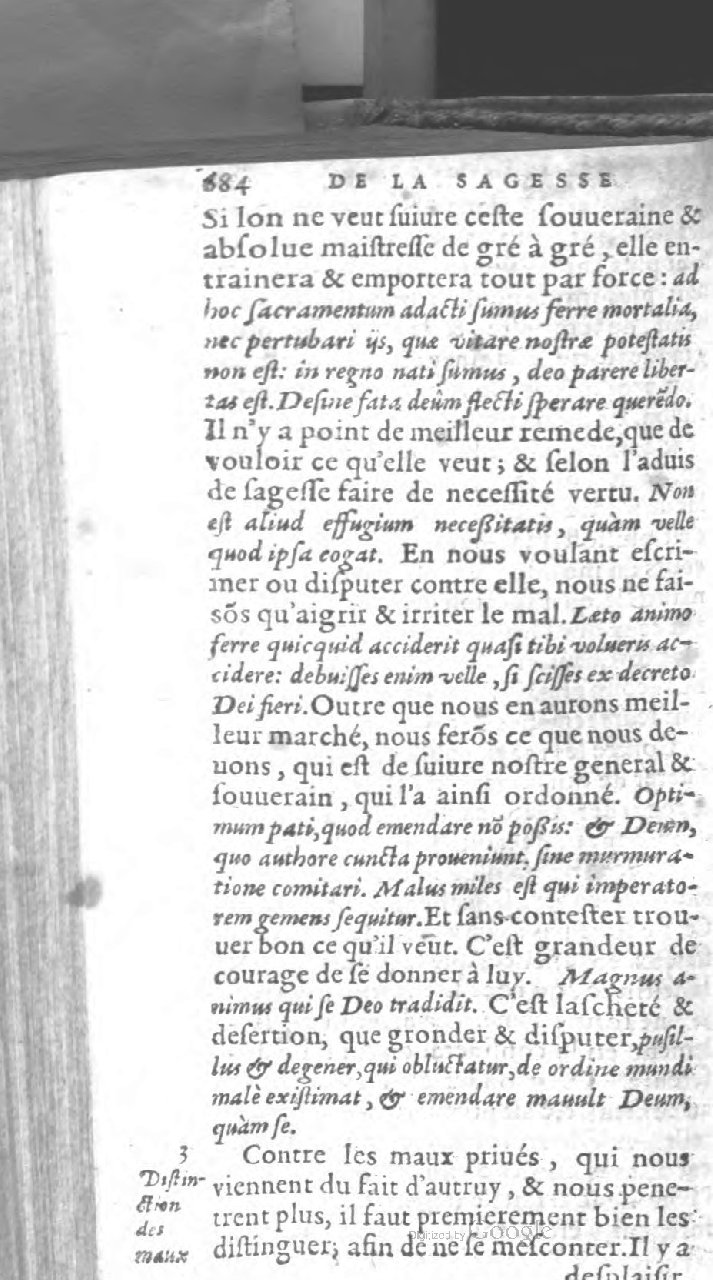 684 DE LA SAGESSE
Si lon ne veut ſuiure ceſte ſouueraine &
abſolue maiſtreſſe de gré à gré, elle en-
trainera & emportera tout par force : ad
hoc ſacramentum adacti ſumus ferre mortalia,
nec pertubari ijs, quæ vitare noſtræ poteſtatis
non eſt: in regno nati ſumus, deo parere liber-
tas eſt. Deſine fata deûm flecti ſperare querẽdo.
Il n'y a point de meilleur remede, que de
vouloir ce qu'elle veut ; & ſelon l'aduis
de ſageſſe faire de neceſſité vertu. Non
eſt aliud effugium neceßitatis, quàm velle
quod ipſa cogat. En nous voulant eſcri-
mer ou diſputer contre elle, nous ne fai-
sõs qu'aigrir & irriter le mal. Læto animo
ferre quicquid acciderit quaſi tibi volueris ac-
cidere: debuiſſes enim velle, ſi ſciſſes ex decreto
Dei fieri. Outre que nous en aurons meil-
leur marché, nous ferõs ce que nous de-
uons, qui eſt de ſuiure noſtre general &
ſouuerain, qui l'a ainſi ordonné. Opti-
mum pati, quod emendare nõ poßis: & Deum,
quo authore cuncta proueniunt, ſine murmura-
tione comitari. Malus miles eſt qui imperato-
rem gemens ſequitur. Et ſans conteſter trou-
uer bon ce qu'il veut. C'eſt grandeur de
courage de ſe donner à luy. Magnus a-
nimus qui ſe Deo tradidit. C'eſt laſcheté &
deſertion, que gronder & diſputer, puſil-
lus & degener, qui obluctatur, de ordine mundi
malè exiſtimat, & emendare mauult Deum,
quàm ſe.
3
Diſtin-
ction
des
maux
Contre les maux priués, qui nous
viennent du fait d'autruy, & nous pene-
trent plus, il faut premierement bien les
diſtinguer; afin de ne ſe meſconter. Il y a
deſplaiſir
Digitized by Google